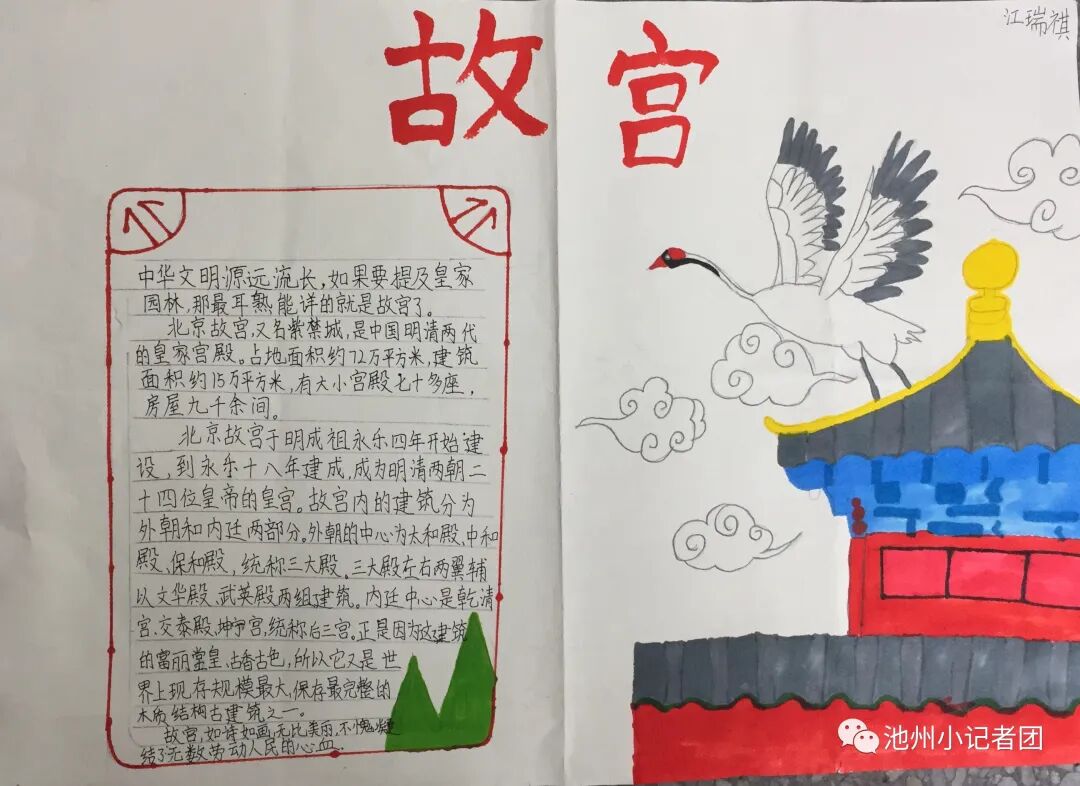 故宫
江瑞祺
中华文明源远流长,如果要提及皇家
园林,那最耳熟能详的就是故宫了。
北京故宫,又名紫禁城,是中国明清两代
的皇家宫殿。占地面积约72万平方米,建筑
面积约15万平方米,有大小宫殿七十多座,
房屋九千余间。
北京故宫于明成祖永乐四年开始建
设,到永乐十八年建成,成为明清两朝二
十四位皇帝的皇宫。故宫内的建筑分为
外朝和内廷两部分。外朝的中心为太和殿、中和
殿、保和殿,统称三大殿。三大殿左右两翼辅
以文华殿、武英殿两组建筑。内廷中心是乾清
宫、交泰殿、坤宁宫,统称后三宫。正是因为这建筑
的富丽堂皇、古香古色,所以它又是世
界上现存规模最大,保存最完整的
木质结构古建筑之一。
故宫,如诗如画,无比美丽,不愧凝
结了无数劳动人民的心血.
池州小记者团